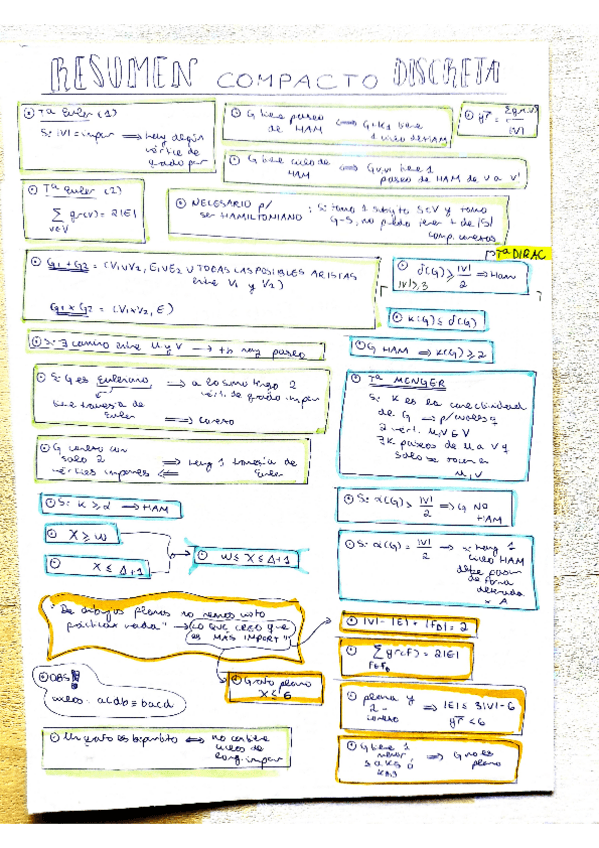 RESUMEN COMPACTO DISCRETA
Tª Euler (1)
Si |V| = impar ⟹ hay algún
vértice de
grado par
G tiene paseo
de HAM ⟺ G+K1 tiene
1 ciclo de HAM
gr̄ = Σgr(v)
|V|
G tiene ciclo de
HAM ⟺ G-uv tiene 1
paseo de HAM de u a v
Tª Euler (2)
Σ gr(v) = 2|E|
v∈V
NECESARIO p/
ser HAMILTONIANO : Si tomo 1 subcjto S⊂V y tomo
G-S, no puedo tener + de |S|
comp. conexas
Tª DIRAC
G1 + G2 = (V1∪V2, E1∪E2 ∪ TODAS LAS POSIBLES ARISTAS
entre V1 y V2)
G1 x G2 = (V1xV2, E)
δ(G) ≥ |V|
2 ⟹ Ham
|V| ≥ 3
K(G) ≤ δ(G)
Si ∃ camino entre u y v → tb hay paseo
G HAM ⟹ K(G) ≥ 2
Si G es Euleriano → a lo sumo tengo 2
vért. de grado impar
tiene travesía de
Euler ⟹ conexo
Tª MENGER
Si K es la conectividad
de G → p/
2 vért. u,v ∈ V
∃ K paseos de u a v y
solo se tocan en
u, v
G conexo con
solo 2
vértices impares ⟹ hay 1 travesía de
Euler
Si K ≥ α ⟹ HAM
Si α(G) > |V|
2 ⟹ G NO
HAM
χ ≥ ω
χ ≤ Δ+1
ω ≤ χ ≤ Δ+1
Si α(G) = |V|
2 → si hay 1
ciclo HAM
debe pasar
de forma
alternada
x A
"De dibujos planos no hemos visto
prácticas nada" → LO QUE CREO que
es MÁS IMPORT"
|V| - |E| + |F| = 2
Σ gr(F) = 2|E|
Grafo plano
χ ≤ 6
OBS!
ciclos: acdb = bacd
plano y
2-
conexo ⟹ |E| ≤ 3|V|-6
gr̄ < 6
Un grafo es bipartito ⟺ no contiene
ciclos de
long. impar
G tiene 1
menor
K5 ó
K3,3 ⟹ G no es
plano